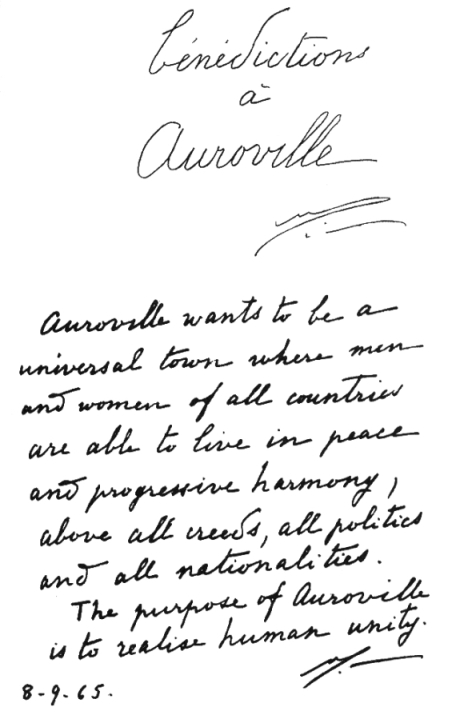 bénédictions
à
Auroville
Auroville wants to be a
universal town where men
and women of all countries
are able to live in peace
and progressive harmony,
above all creeds, all politics
and all nationalities.
The purpose of Auroville
is to realise human unity.
8-9.65.